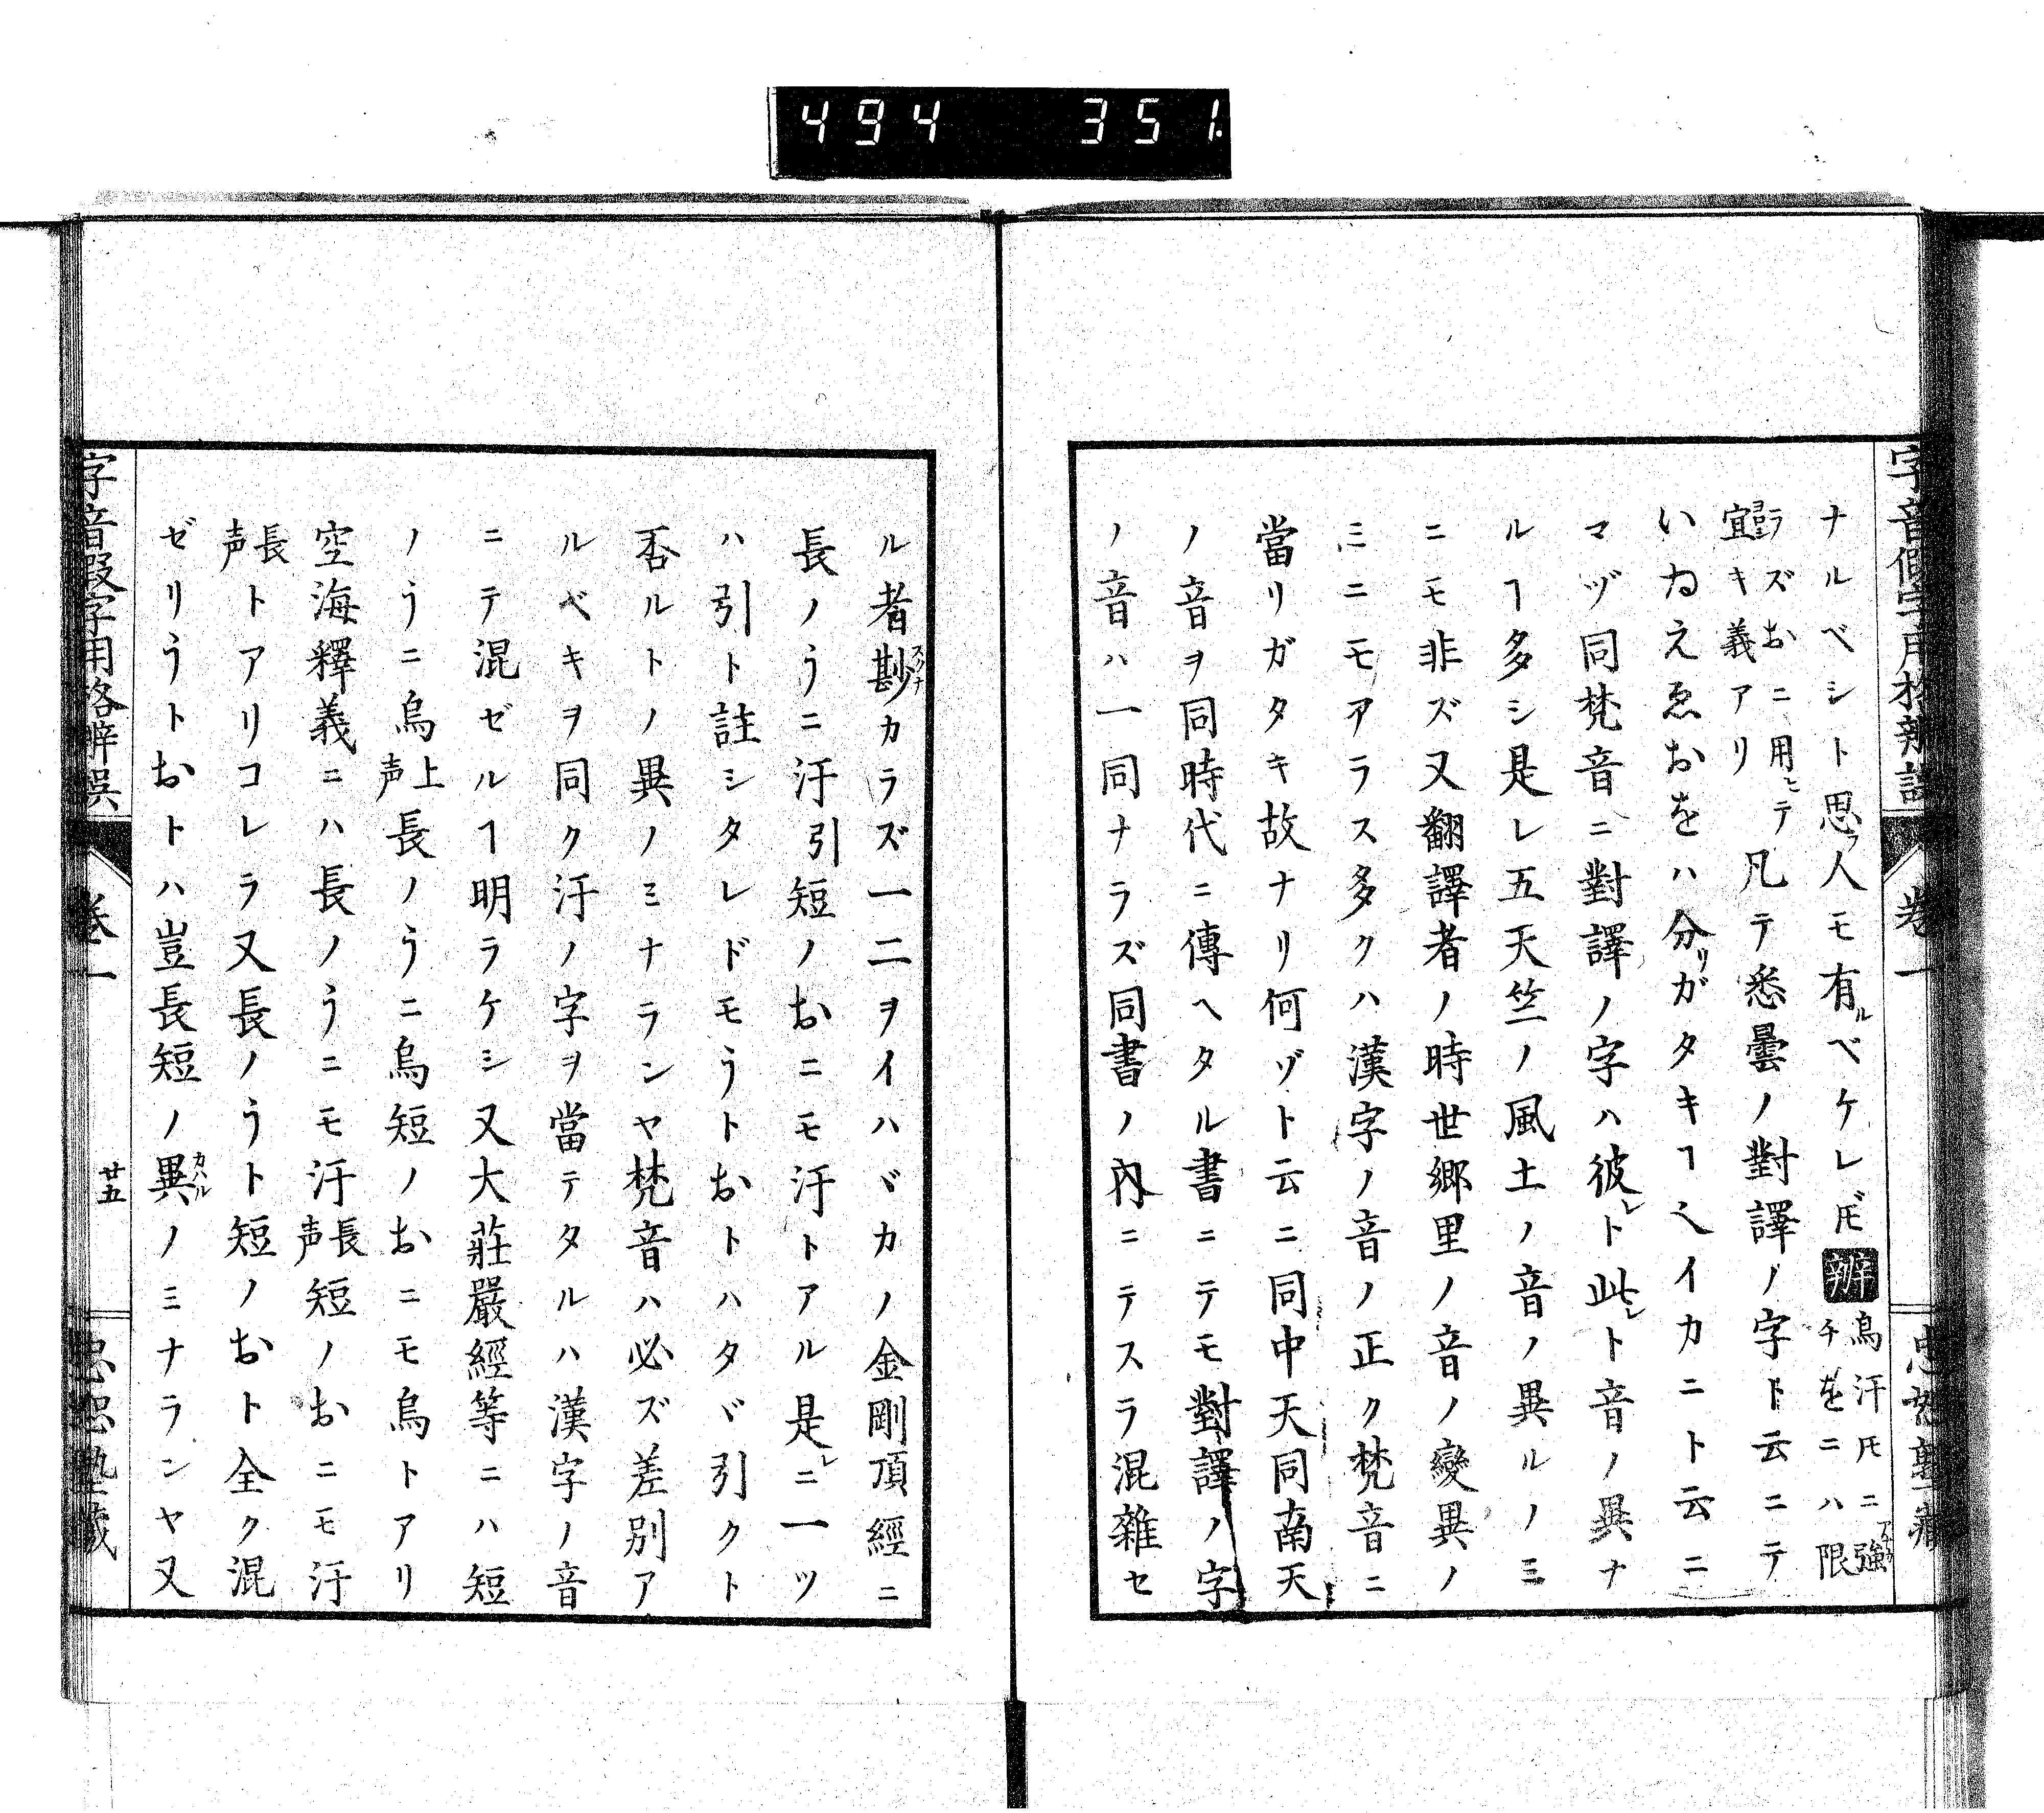 494 351.
字音假字用格辨誤 卷一 忠恕塾藏
ナルベシト思フ人モ有ルベケレ𪜈辨烏汙𪜈ニ強
チをニハ限
ラズおニ用ヒテ
宜キ義アリ
凡テ悉曇ノ對譯ノ字ト云ニテ
いゐえゑおをハ分リガタキヿヘイカニト云ニ
マヅ同梵音ニ對譯ノ字ハ彼レト此レト音ノ異ナ
ルヿ多シ是レ五天竺ノ風土ノ音ノ異ルノミ
ニモ非ズ又翻譯者ノ時世郷里ノ音ノ變異ノ
ミニモアラス多クハ漢字ノ音ノ正ク梵音ニ
當リガタキ故ナリ何ゾト云ニ同中天同南天
ノ音ヲ同時代ニ傳ヘタル書ニテモ對譯ノ字
ノ音ハ一同ナラズ同書ノ内ニテスラ混雜セ
ル者尠カラズ一二ヲイハヾカノ金剛頂經ニ
長ノうニ汙引短ノおニモ汙トアル是レニ一ツ
ハ引ト註シタレドモうトおトハタヾ引クト
否ルトノ異ノミナランヤ梵音ハ必ズ差別ア
ルベキヲ同ク汙ノ字ヲ當テタルハ漢字ノ音
ニテ混ゼルヿ明ラケシ又大莊嚴經等ニハ短
ノうニ烏上声長ノうニ烏短ノおニモ烏トアリ
空海釋義ニハ長ノうニモ汙長声短ノおニモ汙
長声トアリコレラ又長ノうト短ノおト全ク混
ゼリうトおトハ豈長短ノ異ノミナランヤ又
字音假字用格辨誤 卷一 廿五 忠恕塾藏